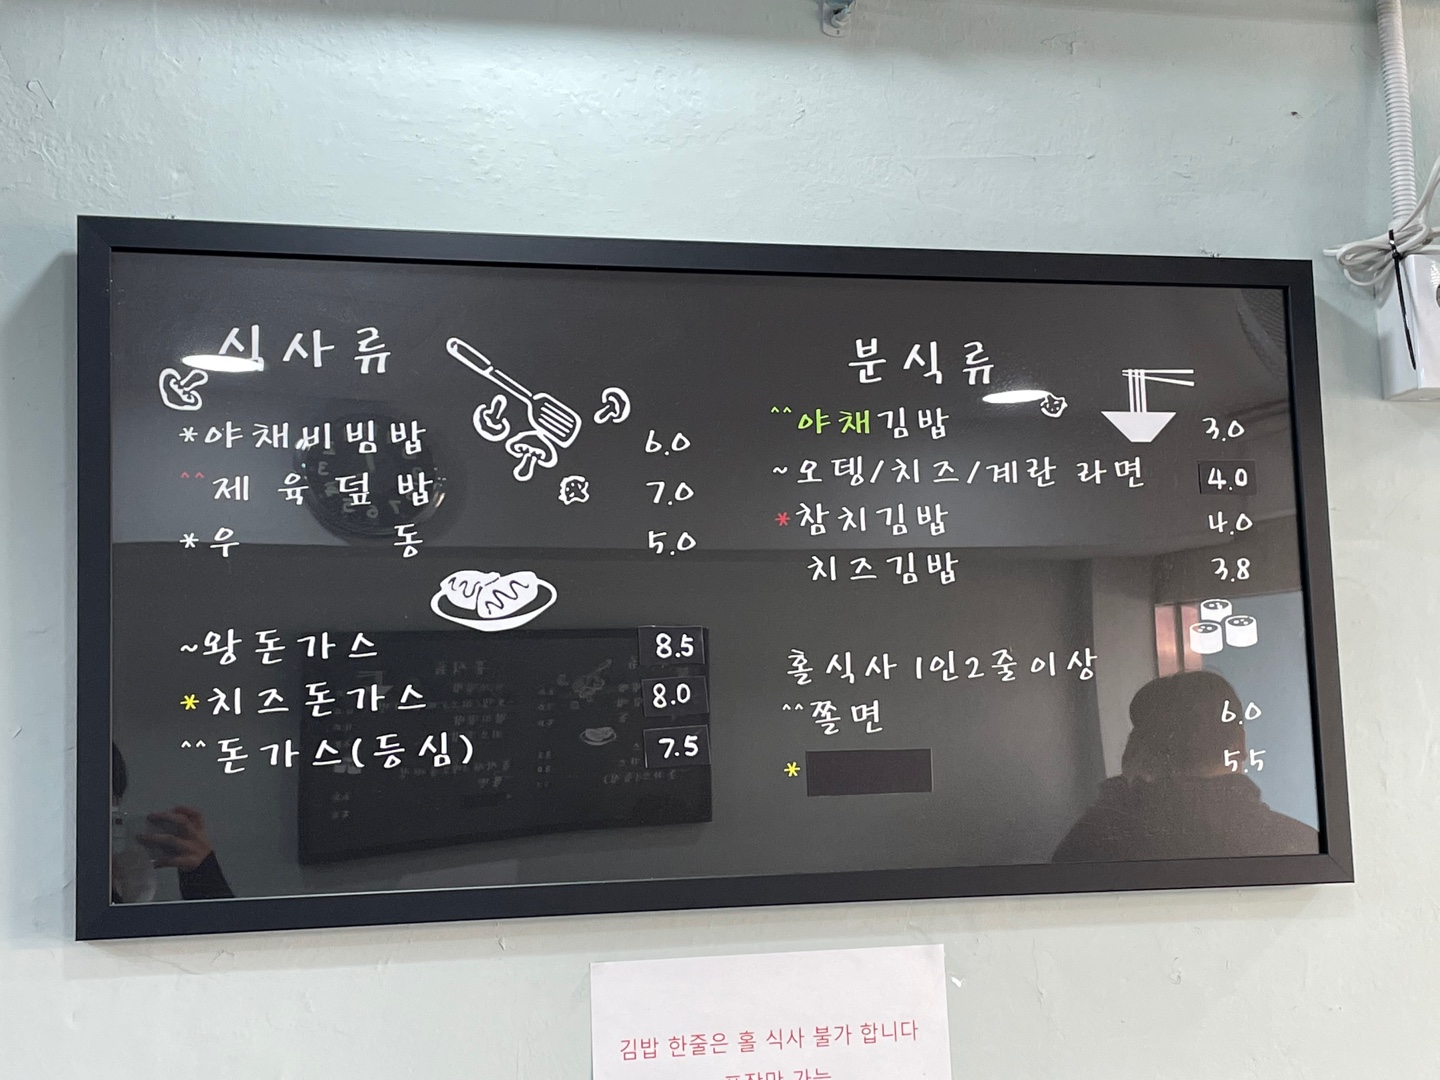 식사류
*야채비빔밥 6.0
^^제육덮밥 7.0
*우동 5.0
~왕돈가스 8.5
*치즈돈가스 8.0
^^돈가스(등심) 7.5
분식류
^^야채김밥 3.0
~오뎅/치즈/계란 라면 4.0
*참치김밥 4.0
치즈김밥 3.8
홀식사 1인2줄이상
^^쫄면 6.0
* 5.5
김밥 한줄은 홀 식사 불가 합니다
포장만 가능